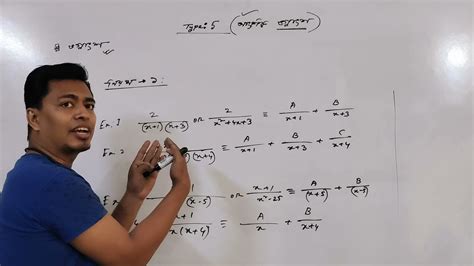 Type: 5 (আংশিক ভগ্নাংশ)
Ex: 1 2/((x+1)(x+3)) OR 2/(x²+4x+3) ≡ A/(x+1) + B/(x+3)
Ex: 2 (x+4) ≡ A/(x+1) + B/(x+3) + C/(x+4)
(x-5) OR (x+1)/(x²-25) ≡ A/(x+5) + B/(x-5)
+1/(x(x+4)) ≡ A/x + B/(x+4)